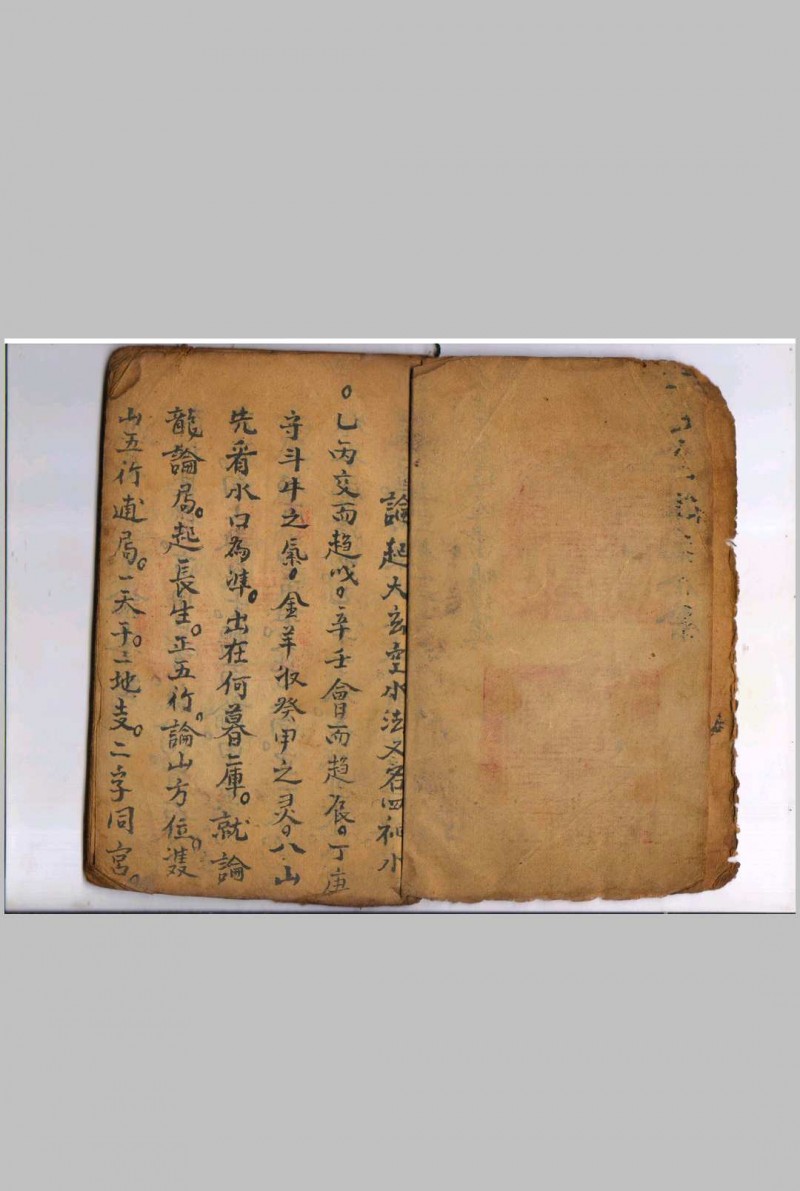 論起大玄空水法又名四神水
。乙丙交而趨戌。辛壬會而趨辰。丁庚
守斗牛之氣。金羊收癸甲之灵。八山
先看水口為準。出在何暮庫。就論
龍論局。起長生。正五行。論山方位。雙
山五行通局。一天干。二地支。二字同宮。